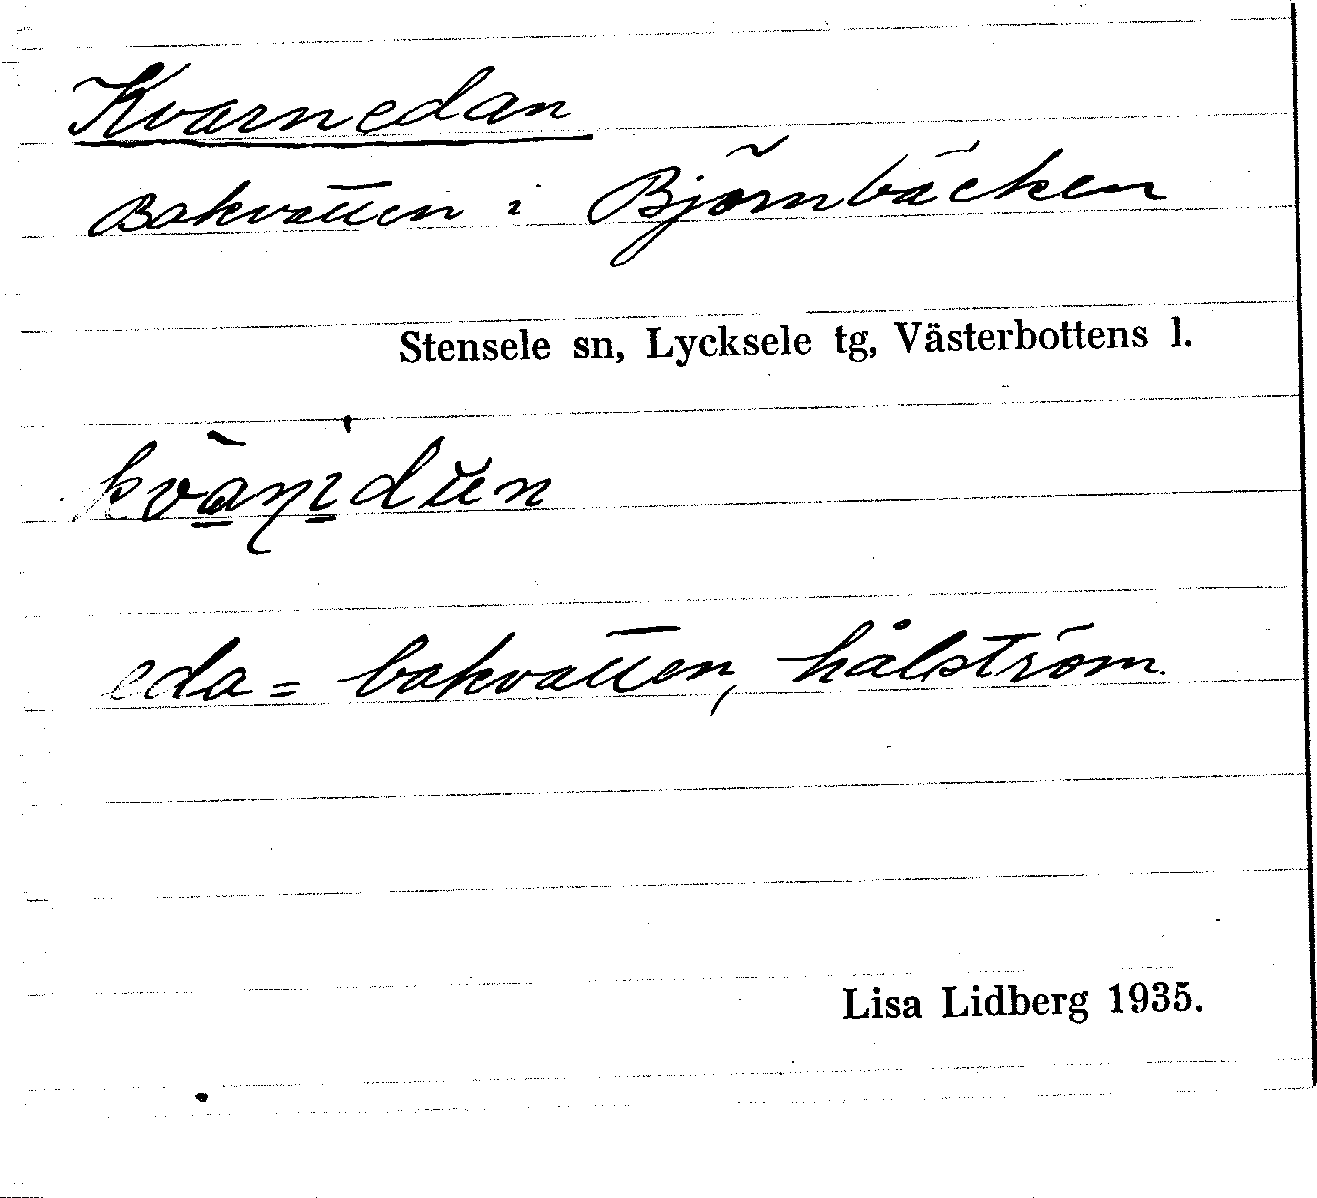 Kvarnedan
Bakvatten i Björnbäcken
Stensele sn, Lycksele tg, Västerbottens l.
eda = bakvatten, hålström.
Lisa Lidberg 1935.